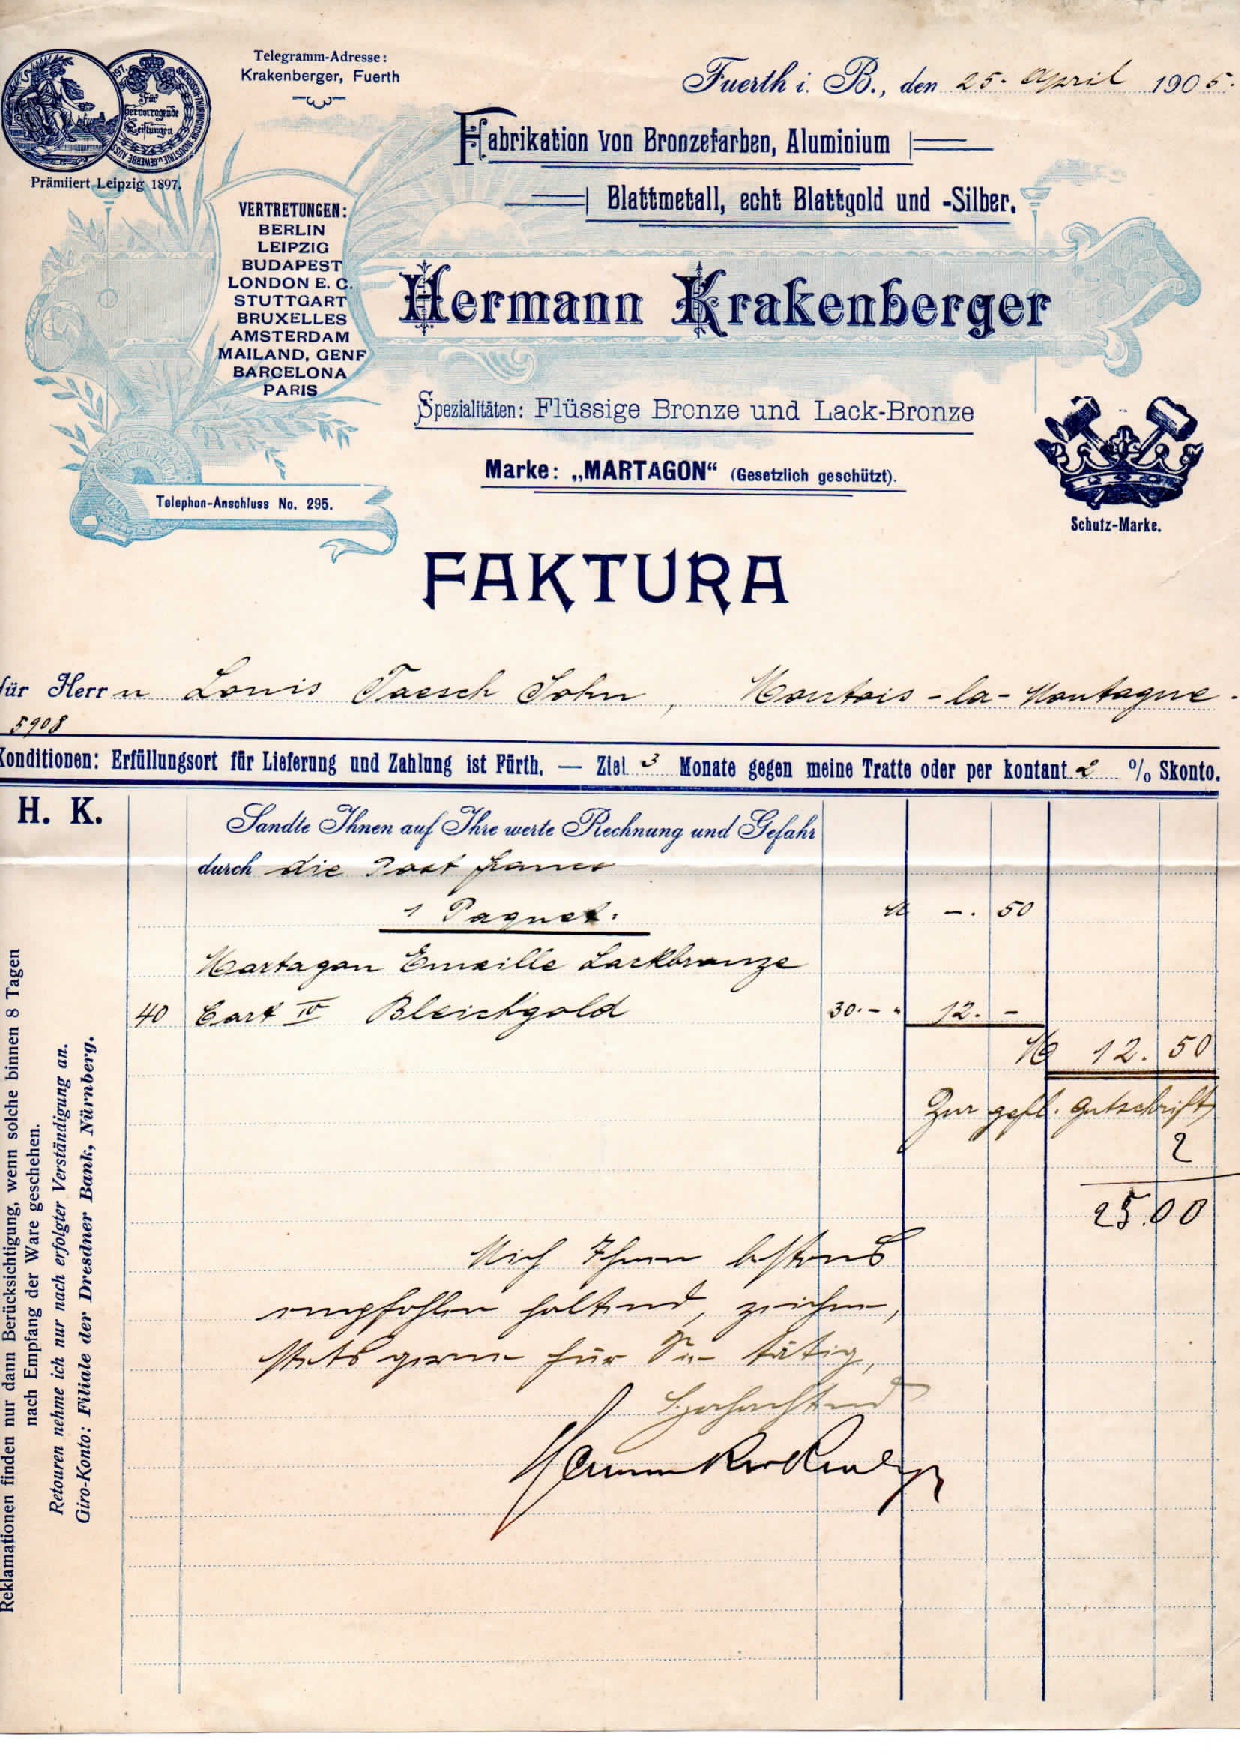 Telegramm-Adresse:
Krakenberger, Fuerth
Prämiiert Leipzig 1897.
Fuerth i. B., den 25. April 1905.
Fabrikation von Bronzefarben, Aluminium
Blattmetall, echt Blattgold und -Silber.
VERTRETUNGEN:
BERLIN
LEIPZIG
BUDAPEST
LONDON E. C.
STUTTGART
BRUXELLES
AMSTERDAM
MAILAND, GENF
BARCELONA
PARIS
Hermann Krakenberger
Spezialitäten: Flüssige Bronze und Lack-Bronze
Marke: „MARTAGON“ (Gesetzlich geschützt).
Telephon-Anschluss No. 295.
Schutz-Marke.
FAKTURA
für Herrn Louis Taesch Sohn, Montois-la-Montagne.
5908
Konditionen: Erfüllungsort für Lieferung und Zahlung ist Fürth. — Ziel 3 Monate gegen meine Tratte oder per kontant 2 % Skonto.
H. K.
Sandte Ihnen auf Ihre werte Rechnung und Gefahr
durch die Post franco
1 Paquet. M -. 50
Martagon Emaille Lackbronze
40 Cart IV Bleichgold 30.- " 12. -
M 12. 50
Zur gefl. Gutschrift
2
25.00
Mich Ihnen bestens
empfohlen haltend, zeichne,
stets gerne für Sie tätig,
Hochachtend
Hermann Krakenberger
Reklamationen finden nur dann Berücksichtigung, wenn solche binnen 8 Tagen
nach Empfang der Ware geschehen.
Retouren nehme ich nur nach erfolgter Verständigung an.
Giro-Konto: Filiale der Dresdner Bank, Nürnberg.